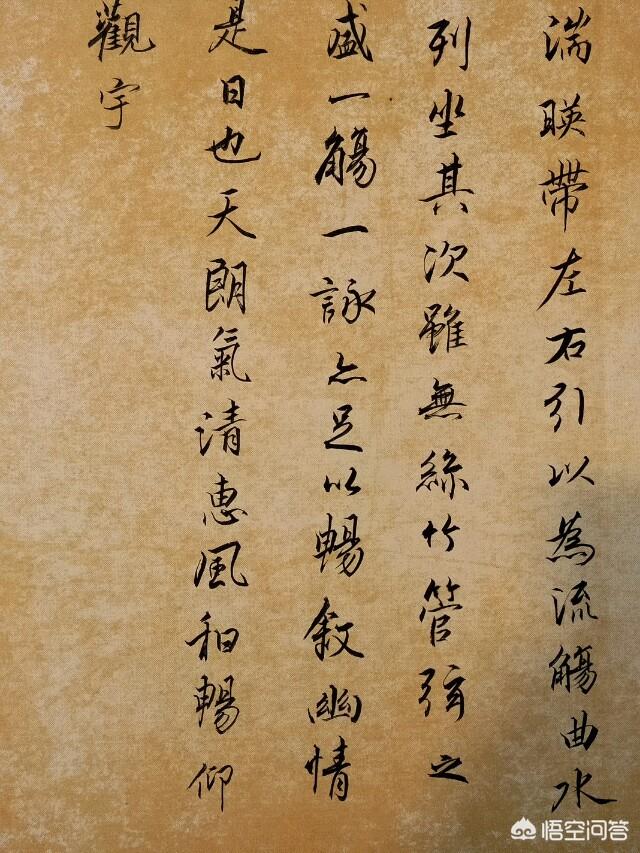 湍暎帶左右引以為流觴曲水
列坐其次雖無絲竹管弦之
盛一觴一詠亦足以暢敘幽情
是日也天朗氣清惠風和暢仰
觀宇
悟空问答